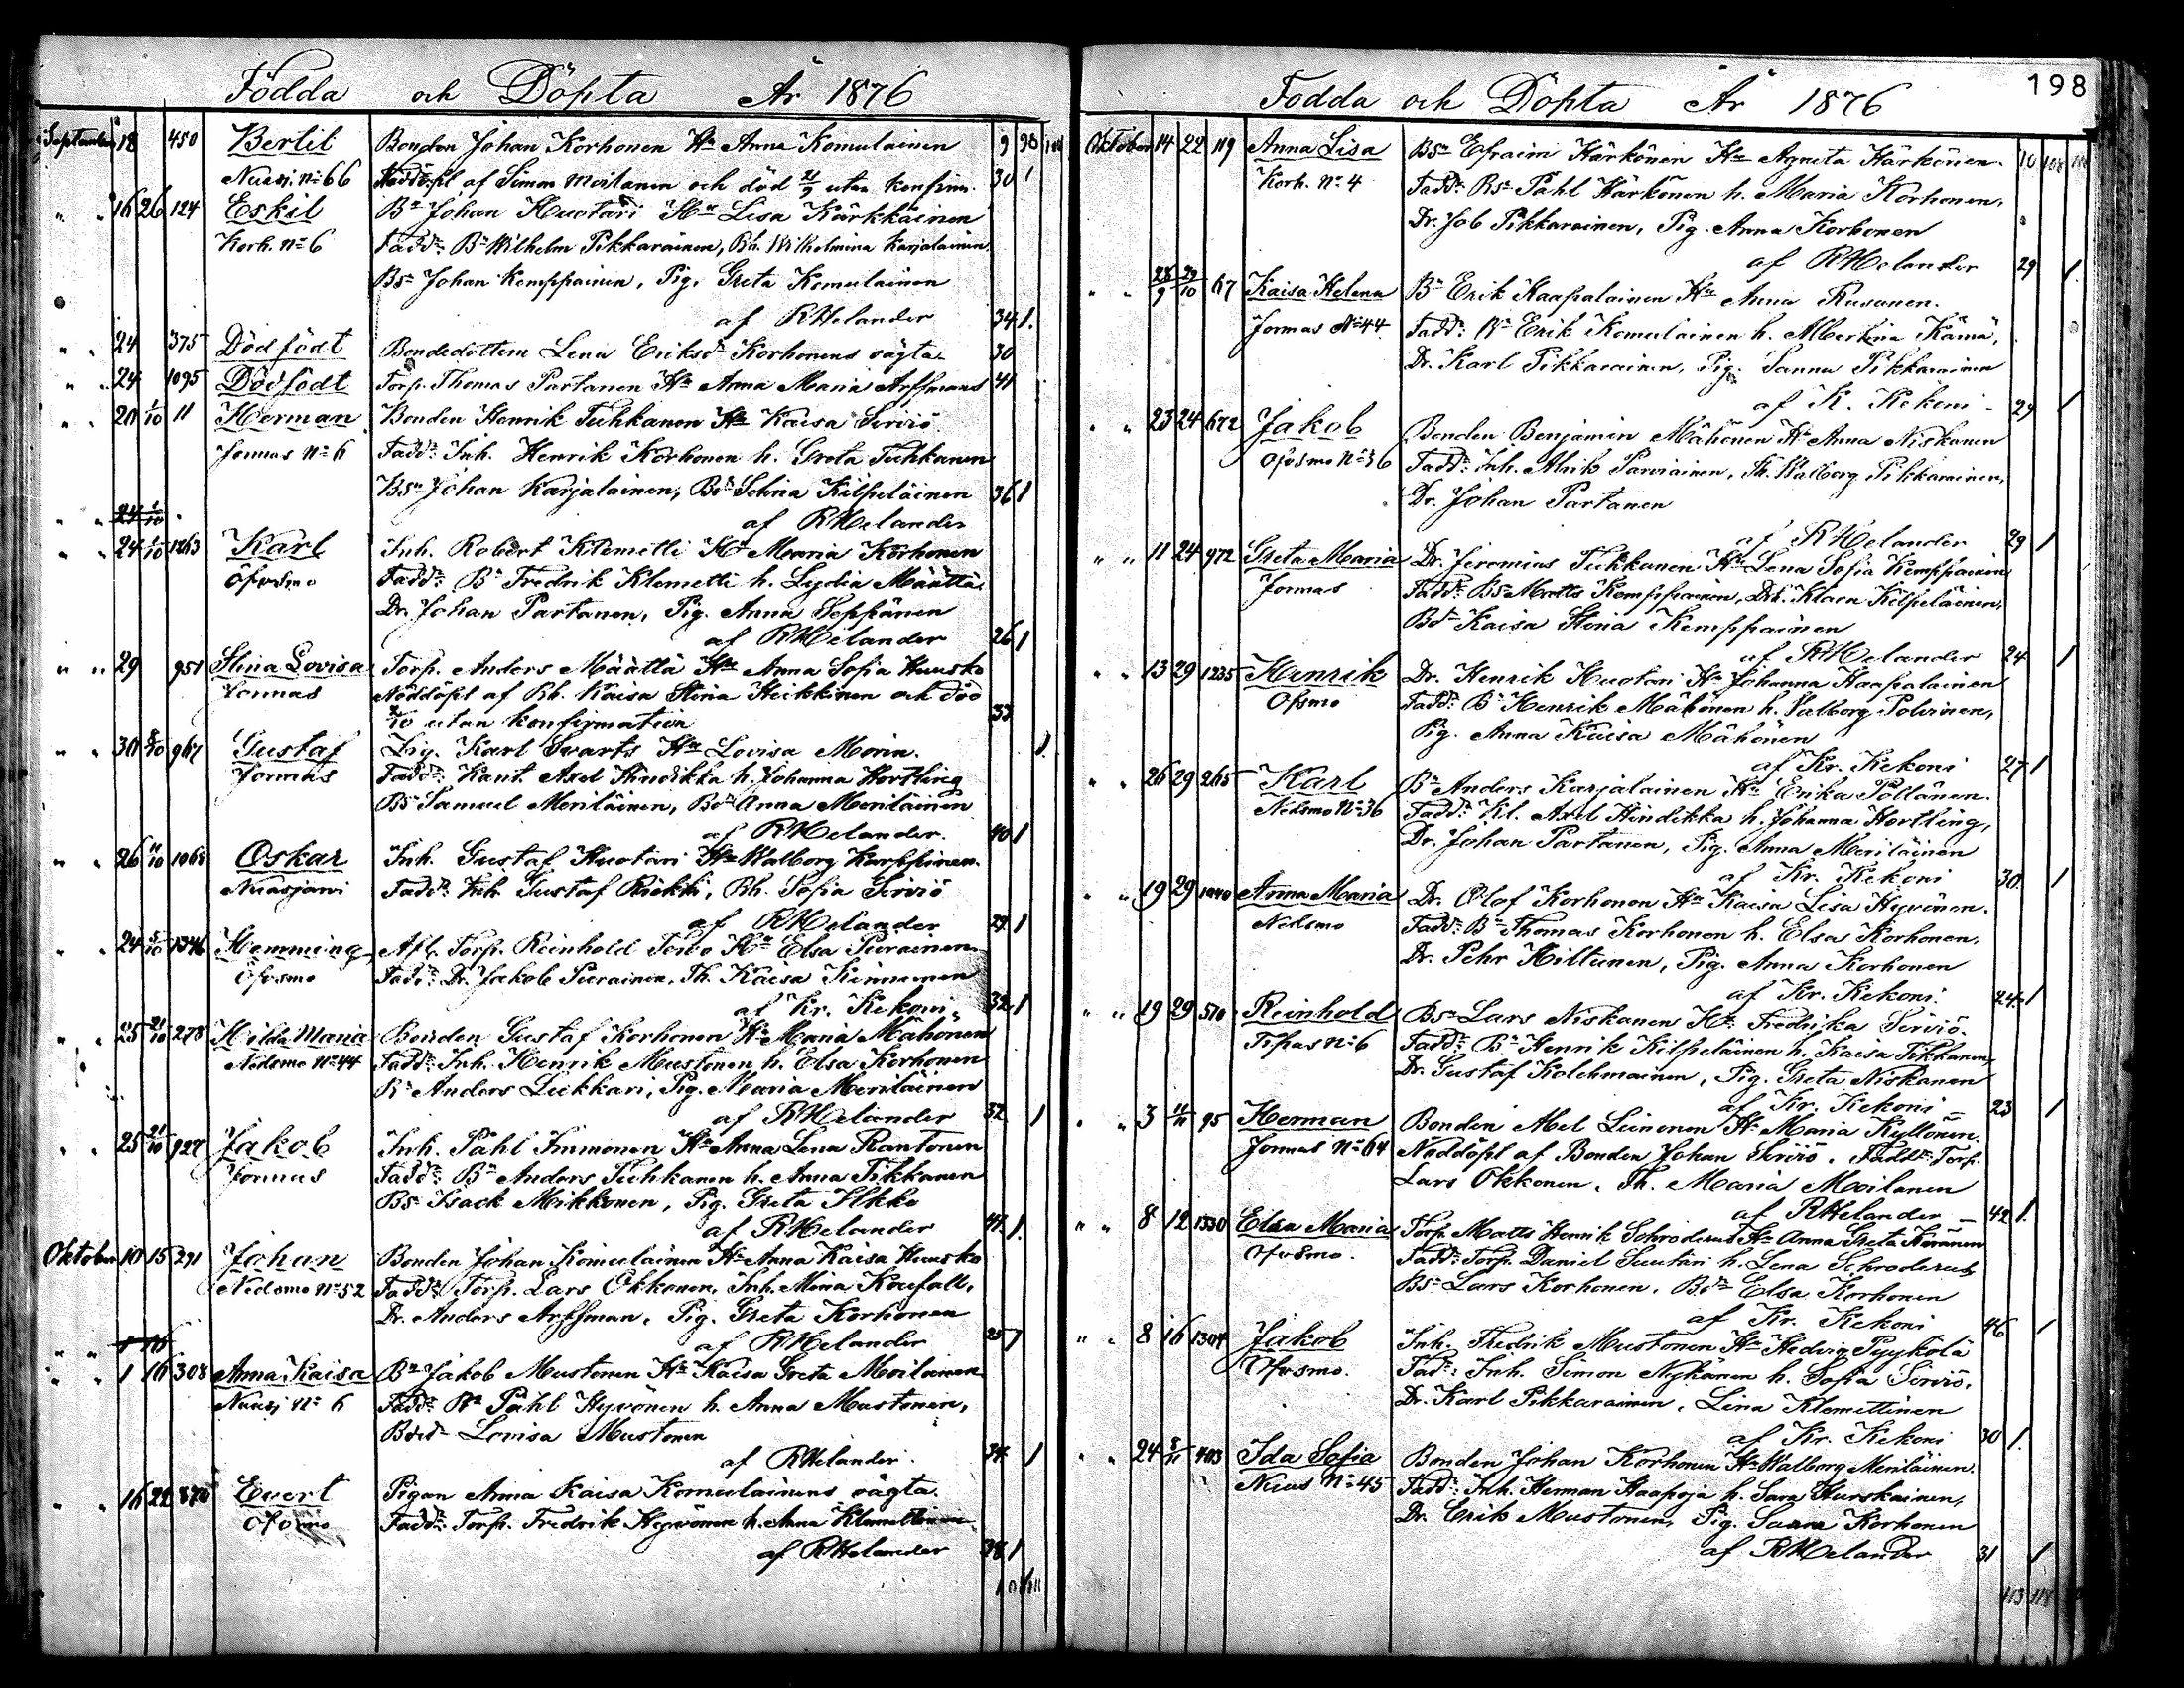 Födda och Döpta År 1876
September 18 450 Bertil Bonden Johan Korhonen Hu Anna Komulainen 9 98
Nuasj. No 66 Nöddöpt af Simon Moilanen och död 21/9 utan konfirm. 30 1
" " 16 26 124 Eskil Bn Johan Huotari Hu Lisa Kärkkäinen
Korh. No 6 Fadd: Bn Wilhelm Pikkarainen, Bh. Wilhelmina Karjalainen
Bs Johan Kemppainen, Pig. Greta Komulainen
af RHelander 34 1.
" " 24 375 Död född Bondedottern Lena Eriksdr Korhonens oägta 30
" " 24 1095 Dödfödt Torp. Thomas Partanen Hu Anna Maria Arffmans 41
" " 20 1/10 11 Herman Bonden Henrik Tuhkanen Hu Kaisa Sirviö
Jormas No 6 Fadd: Inh. Henrik Korhonen h. Greta Tuhkanen
Bsn Johan Karjalainen, Bdr Selina Kilpeläinen 36 1
af RHelander
" " 24 1/10
" " 24 1/10 1263 Karl Inh. Robert Klemetti Hu Maria Korhonen
Öfvsmo Fadd: Bn Fredrik Klemetti h. Lydia Määttä
Dr. Johan Partanen, Pig. Anna Seppänen
af RHelander 26 1
" " 29 951 Stina Lovisa Torp. Anders Määttä Hu Anna Sofia Huusko
Jormas Nöddöpt af Bh. Kaisa Stina Heikkinen och död
/10 utan konfirmation 33
" " 30 8/10 967 Gustaf Karl Svarts Hu Lovisa Morin. 1.
Jormas Fadd: Kant. Axel Hindikka h. Johanna Hortling
Bs Samuel Meriläinen, Bdr Anna Meriläinen
af RHelander. 40 1
" " 26 11/10 1068 Oskar Inh. Gustaf Huotari Hu Walborg Karppinen.
Nuasjärvi Fadd: Inh. Gustaf Riekki, Bh. Sofia Sirviö
af RHelander 29 1
" " 24 5/10 1346 Hemming Afl. Torp. Reinhold Torvo Hu Elsa Piirainen
Öfvsmo Fadd: Dr. Jakob Piirainen, Th. Kaisa Kinnunen
af Kr. Kekoni 32 1
" " 25 21/10 278 Hilda Maria Bonden Gustaf Korhonen Hu Maria Mähönen
Nedsmo No 44 Fadd: Inh. Henrik Mustonen h. Elsa Korhonen
Rn Anders Lukkari, Pig. Maria Meriläinen
af RHelander 32 1
" " 25 21/10 927 Jakob Inh. Påhl Immonen Hu Anna Lena Rantonen
Jormas Fadd: Bn Anders Tuhkanen h. Anna Tikkanen
Bs Isack Mikkonen, Pig. Greta Ilkko
af RHelander 44 1.
Oktober 10 15 291 Johan Bonden Johan Komulainen Hu Anna Kaisa Huusko
Nedsmo No 52 Fadd: Torp. Lars Okkonen, Inh. Mina Korpfall,
Dr. Anders Arffman, Pig. Greta Korhonen
af RHelander 25 1
" " 1 16
" " 1 16 308 Anna Kaisa Bn Jakob Mustonen Hu Kaisa Greta Moilanen
Nuasj No 6 Fadd: Bn Påhl Hyvönen h. Anna Mustonen,
Bdr Lovisa Mustonen
af RHelander. 34 1
" " 16 22 Evert Pigan Anna Kaisa Komulainens oägta.
Öfvsmo Fadd: Torp. Fredrik Hyvönen h. Anna Klemettinen
af RHelander 38 1
198
Födda och Döpta År 1876
Oktober 14 22 119 Anna Lisa Bsn Efraim Härkönen Hu Agneta Härkönen. 10 108
Korh. No 4 Fadd: Bsn Påhl Härkönen h. Maria Korhonen,
Dr. Job Pikkarainen, Pig. Anna Korhonen
af RHelander 29 1.
" " 28/9 29/10 67 Kaisa Helena Bn Erik Haapalainen Hu Anna Rusanen.
Jormas No 44. Fadd: Bn Erik Komulainen h. Martina Kämä,
Dr. Karl Pikkarainen, Pig. Sanna Pikkarainen
af K. Kekoni 29 1
" " 23 24 672 Jakob Bonden Benjamin Mähönen Hu Anna Niskanen
Öfvsmo No 36 Fadd: Inh. Alrik Parviainen, Th. Walborg Pikkarainen,
Dr. Johan Partanen
af RHelander 29 1
" " 11 24 972 Greta Maria Dr. Jeremias Tuhkanen Hu Lena Sofia Kemppainen
Jormas Fadd: Bs Matts Kemppainen, Drh. Klara Kilpeläinen,
Bdr Kaisa Stina Kemppainen
af RHelander 24 1
" " 13 29 1235 Henrik Dr. Henrik Huotari Hu Johanna Haapalainen
Öfsmo Fadd: Bn Henrik Mähönen h. Valborg Polvinen,
Pig. Anna Kaisa Mähönen
af Kr. Kekoni 27 1
" " 26 29 265 Karl Bn Anders Karjalainen Hu Erika Pöllänen.
Nedsmo No 36 Fadd: Kl. Axel Hindikka h. Johanna Hortling,
Dr. Johan Partanen, Pig. Anna Meriläinen
af Kr. Kekoni 30. 1
" " 19 29 1040 Anna Maria Dr. Olof Korhonen Hu Kaisa Lisa Hyvönen.
Nedsmo Fadd: Bn Thomas Korhonen h. Elsa Korhonen,
Dr. Pehr Hiltunen, Pig. Anna Korhonen
af Kr. Kekoni. 24 1
" " 19 29 570 Reinhold Bs Lars Niskanen Hu Fredrika Sirviö.
Tipas No 6 Fadd: Bn Henrik Kilpeläinen h. Kaisa Tikkanen,
Dr. Gustaf Kolehmainen, Pig. Greta Niskanen
af Kr. Kekoni 23 1
" " 3 95 Herman Bonden Abel Leinonen Hu Maria Kyllönen.
Jormas No 64 Nöddöpt af Bonden Johan Sirviö. Fadd: Torp.
Lars Okkonen, Th. Maria Moilanen
af RHelander 42 1.
" " 8 12 1330 Elsa Maria Torp. Matts Henrik Schroderus Hu Anna Greta Keränen
Öfvsmo. Fadd: Torp. Daniel Suutari h. Lena Schroderus
Bs Lars Korhonen, Bdr Elsa Korhonen
af Kr. Kekoni 46 1
" " 8 16 1304 Jakob Inh. Fredrik Mustonen Hu Hedvig Pyykölä
Öfvsmo. Fad: Inh. Simon Nykänen h. Sofia Sirviö,
Dr. Karl Pikkarainen, Lina Klemettinen
af Kr. Kekoni 30 1.
" " 24 5/11 403 Ida Sofia Bonden Johan Korhonen Hu Walborg Meriläinen.
Nuas No 45 Fadd: Inh. Herman Haapoja h. Sara Hurskainen,
Dr. Erik Mustonen, Pig. Sanna Korhonen
af RHelander 31 1
113 118